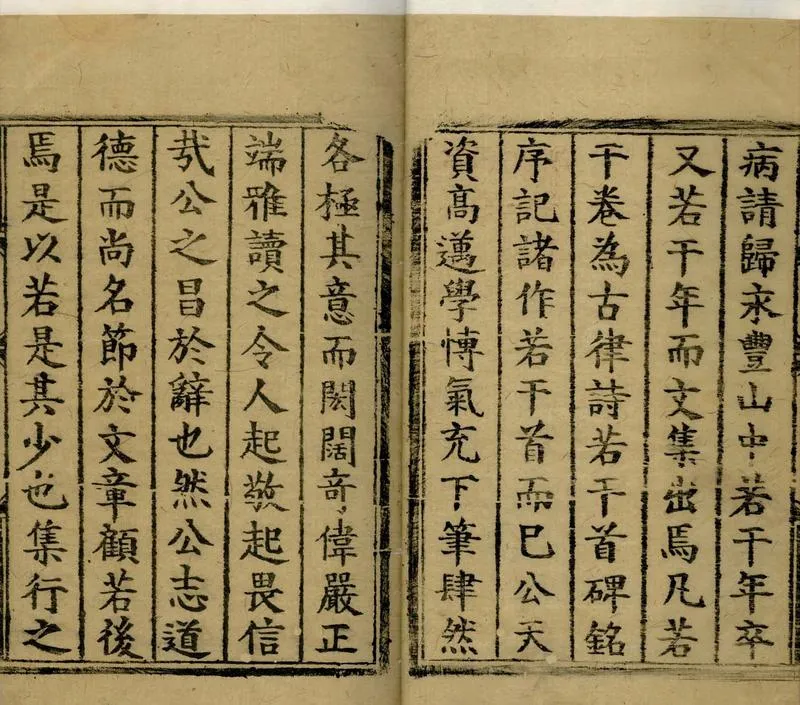 病請歸永豐山中若干年卒
又若干年而文集出焉凡若
干卷為古律詩若干首碑銘
序記諸作若干首而已公天
資髙邁學愽氣充下筆肆然
各極其意而閎闊竒偉嚴正
端雅讀之令人起敬起畏信
哉公之昌於辭也然公志道
德而尚名節於文章顧若後
焉是以若是其少也集行之